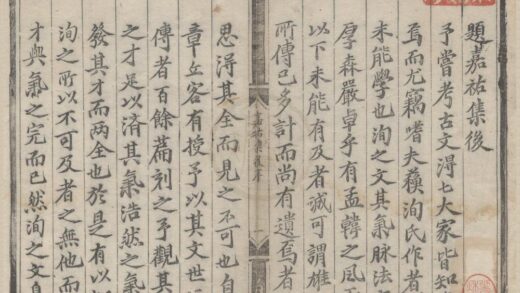 題嘉祐集後
予嘗考古文得七大家皆知
焉而尤竊嗜夫蘓洵氏作者
未能學也洵之文其氣脉法
厚森嚴卓乎有孟韓之風
以下未能有及者誠可謂雄
所傳已多計而尚有遺焉者
嘉祐集後序 一
思得其全而見之不可也自
章丘客有授予以其文世
傳者百餘篇刻之予觀其
之才足以済其氣浩然之氣
發其才而两全也於是有以
洵之所以不可及者之無他而
才與氣之完而已然洵之文自